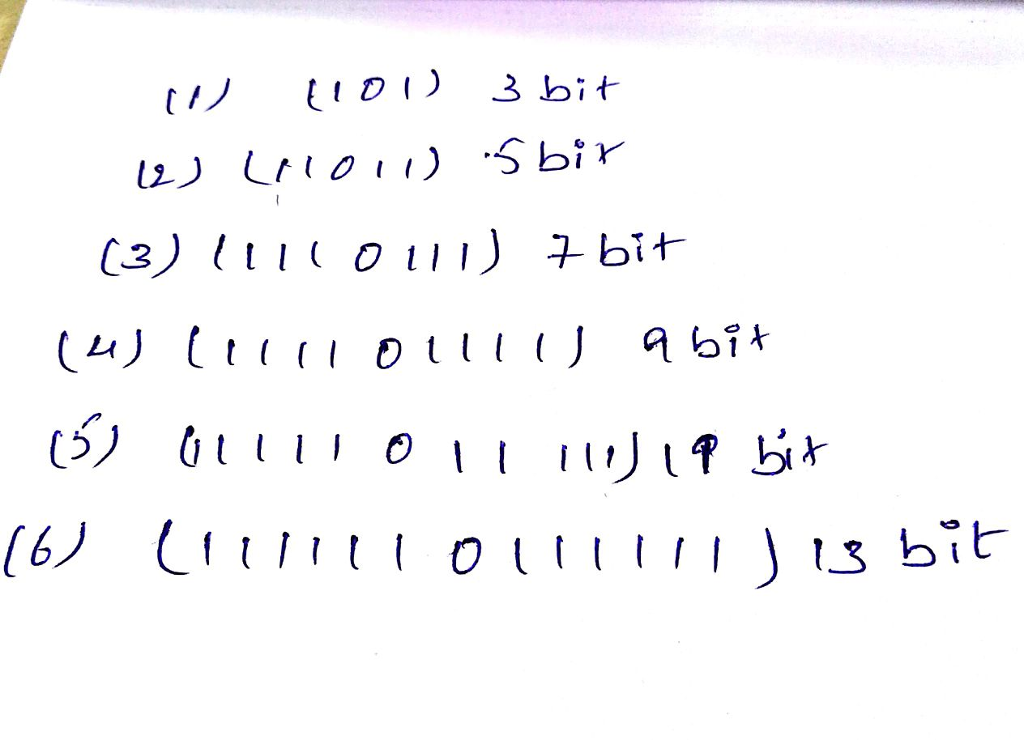 (1) (101) 3 bit
(2) (11011) 5 bit
(3) (1110111) 7 bit
(4) (111101111) 9 bit
(5) (11111011111) bit
(6) (1111110111111) 13 bit